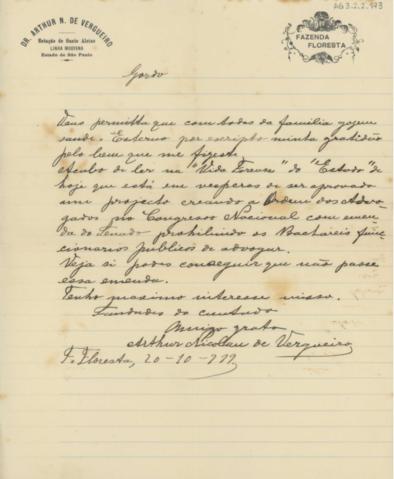 AG3.2.2.993
DR. ARTHUR N. DE VERGUEIRO
Estação de Santo Aleixo
LINHA MOGYANA
Estado de São Paulo
FAZENDA
FLORESTA
Gordo
Deus permitta que com todos da familia gosem
saude. Externo por escripto minha gratidão
pelo bem que me fizeste.
Acabo de ler na "Vida Forense" do "Estado" de
hoje que está em vesperas de ser aprovado
um projecto creando a Ordem dos Advo-
gados no Congresso Nacional com emen-
da do Senado prohibindo os Bachareis fun-
cionarios publicos de advogar.
Veja si podes conseguir que não passe
essa emenda.
Tenho maximo interesse nisso.
Saudades do cunhado
Amigo grato
Arthur Nicolau de Vergueiro
F. Floresta, 20-10-